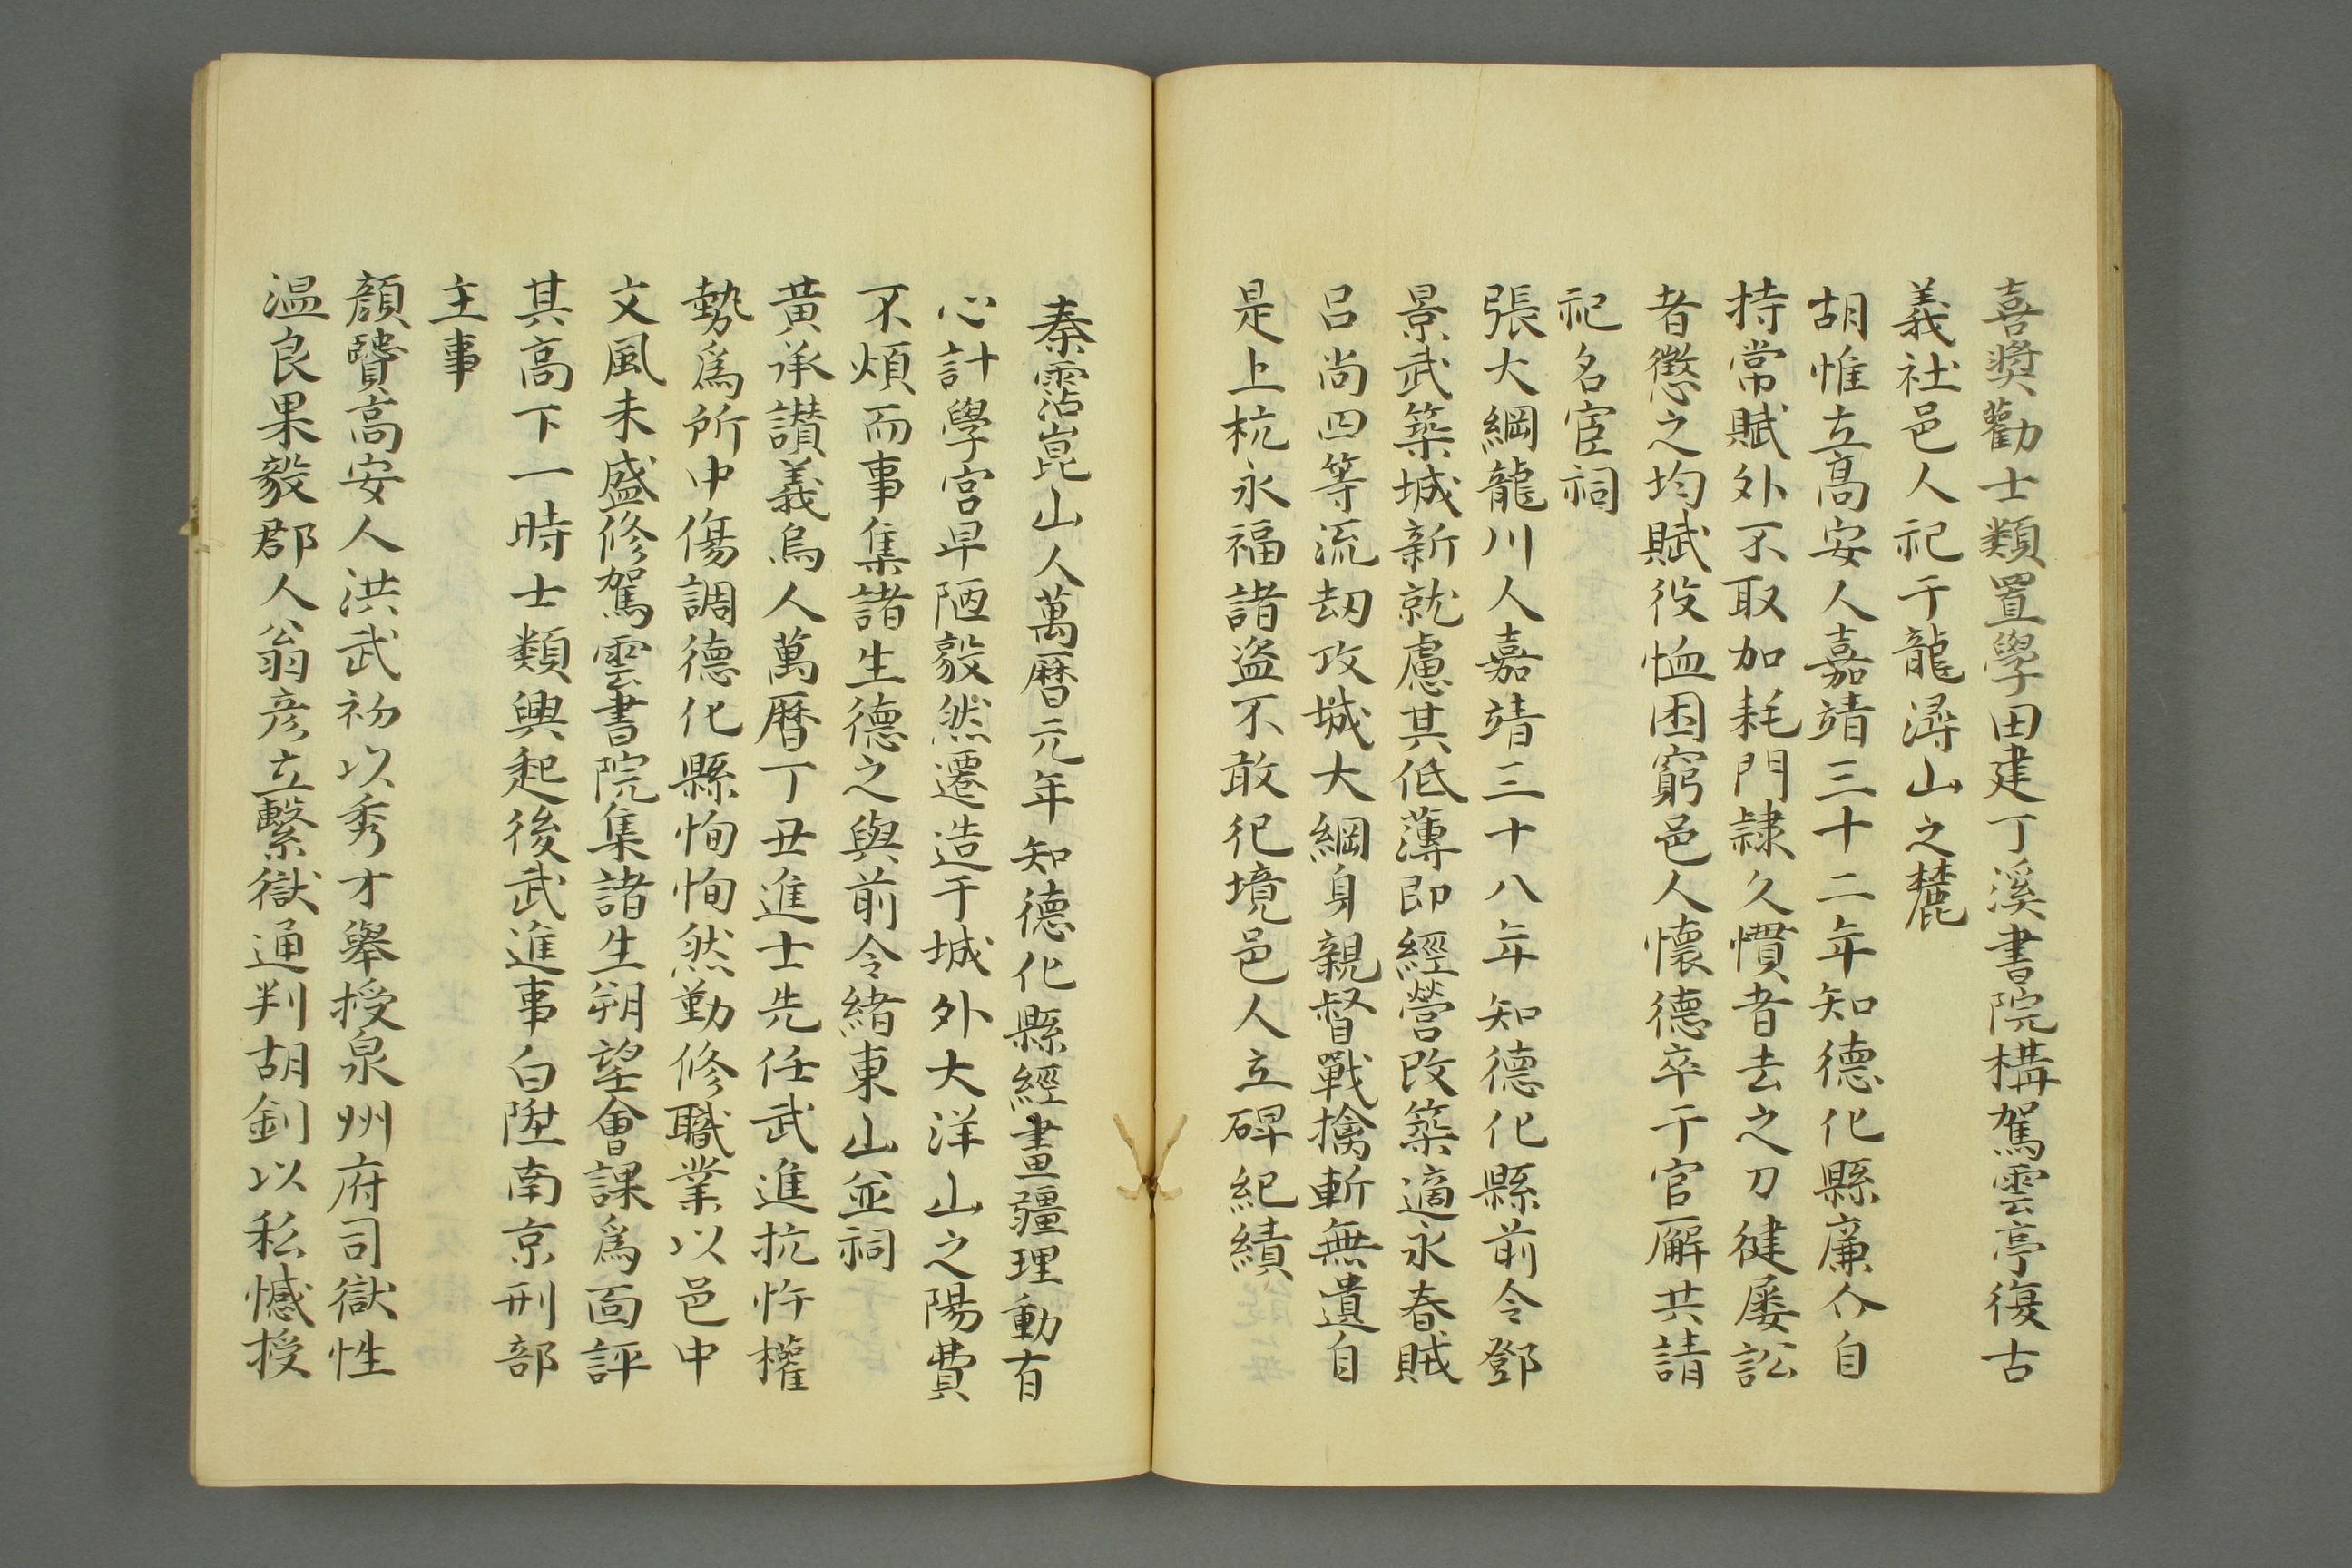 喜奬勸士類置學田建丁溪書院構駕雲亭復古
義社邑人祀于龍潯山之麓
胡惟立高安人嘉靖三十二年知德化縣廉介自
持常賦外不取加耗門隷久慣者去之刀徤屡訟
者懲之均賦役恤困窮邑人懷德卒于官廨共請
祀名宦祠
張大綱龍川人嘉靖三十八年知德化縣前令鄧
景武築城新就慮其低薄即經營改築適永春賊
呂尚四等流刼攻城大綱身親督戰擒斬無遺自
是上杭永福諸盗不敢犯境邑人立碑紀績
秦霑崑山人萬曆元年知德化縣經畫疆理動有
心計學宮卑陋毅然遷造于城外大洋山之陽費
不煩而事集諸生德之與前令緒東山並祠
黄承讃義烏人萬曆丁丑進士先任武進抗忤權
勢爲所中傷調德化縣恂恂然勤修職業以邑中
文風未盛修駕雲書院集諸生朔望會課爲面評
其高下一時士類興起後武進事白陞南京刑部
主事
顔贇高安人洪武初以秀才舉授泉州府司獄性
温良果毅郡人翁彦立繫獄通判胡釗以私憾授